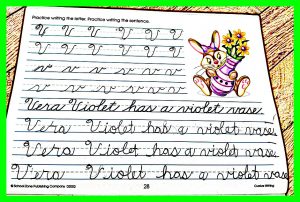 Practice writing the letter. Practice writing the sentence.
V V V V V V
V V V V V V
v v v v v v
v v v v v v
Vera Violet has a violet vase.
Vera Violet has a violet vase.
Vera Violet has a violet vase.
Vera Violet has a violet vase.
© School Zone Publishing Company 28 Cursive Writing